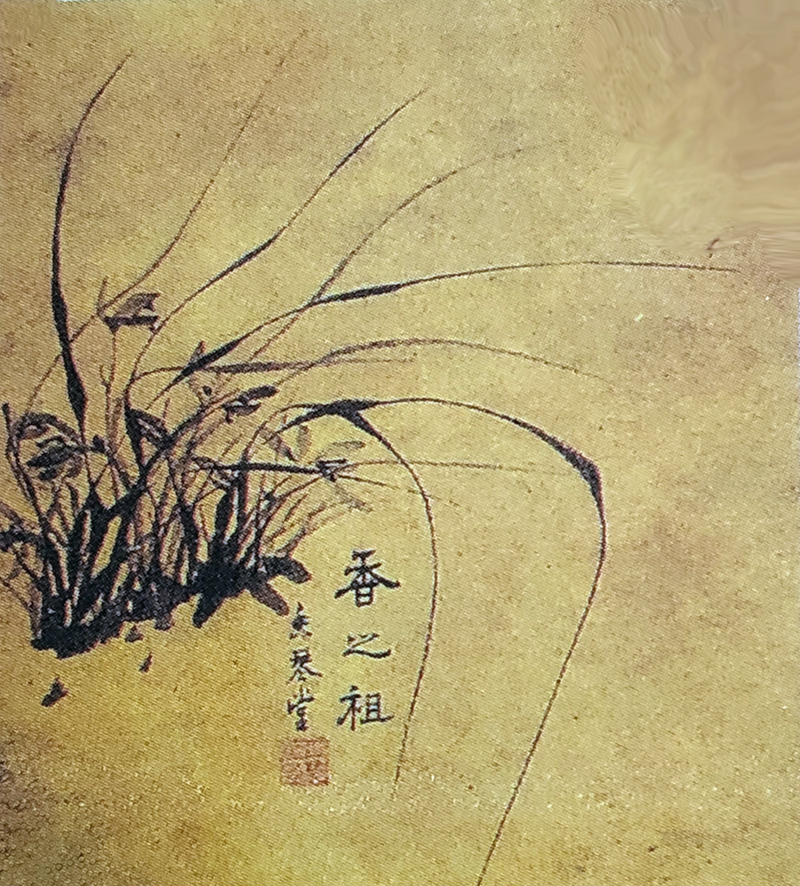 香之祖
琴堂